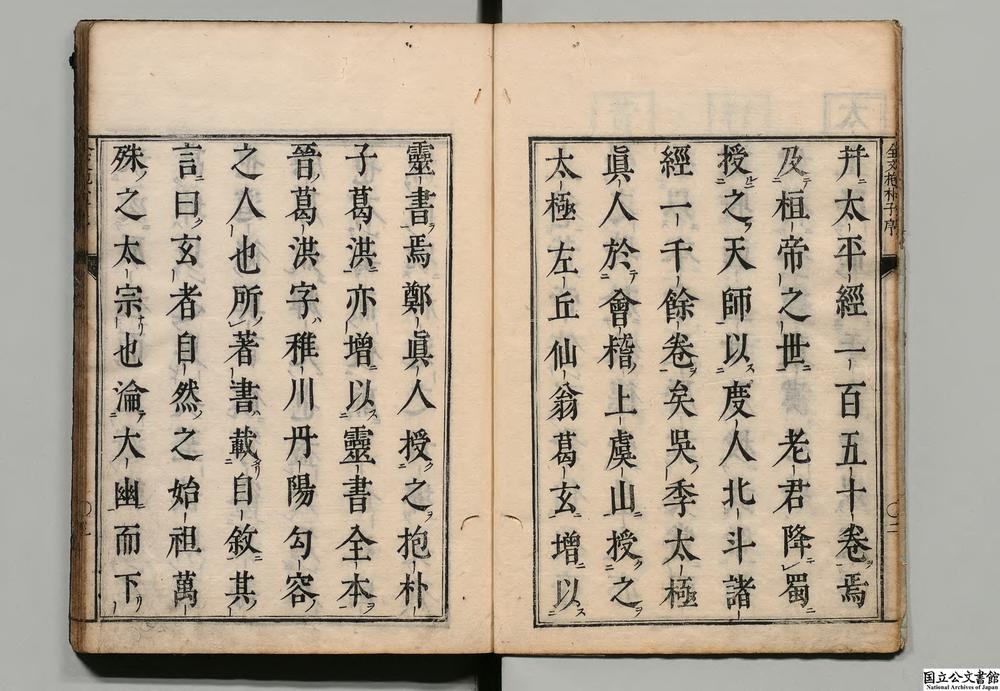 全文抱朴子序
幷太平經一百五十卷焉
及桓帝之世　老君降蜀
授之天師以度人北斗諸
經一千餘卷矣吳季太極
眞人於會稽上虞山授之
太極左丘仙翁葛玄增以
靈書焉鄭眞人授之抱朴
子葛洪亦增以靈書全本
晉葛洪字稚川丹陽勾容
之人也所著書載自敘其
言曰玄者自然之始祖萬
殊之太宗也淪大幽而下
国立公文書館
National Archives of Japan